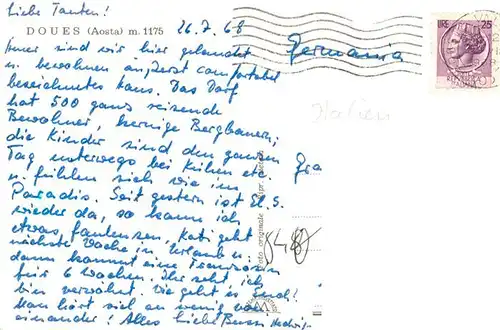 Liebe Tanten!
DOUES (Aosta) m. 1175
26.7.68
Germania
LIRE 25
Italien
sind wir hier gelandet
u. bewohnen ein
bezeichnetes Haus. Das Dorf
hat 500 ganz reizende
Bewohner, kernige Bergbauern,
die Kinder sind den ganzen
Tag unterwegs bei Kühen etc.
u. fühlen sich wie im
Paradis. Seit gestern ist
wieder da, so kann ich
etwas faulenzen, Kati geht
nächste Woche in Urlaub u.
dann kommt eine Französin
für 6 Wochen. Ihr seht, ich
bin verwöhnt. Wie geht's Euch?
Man hört viel zu wenig von
einander! Alles Liebe
foto originale